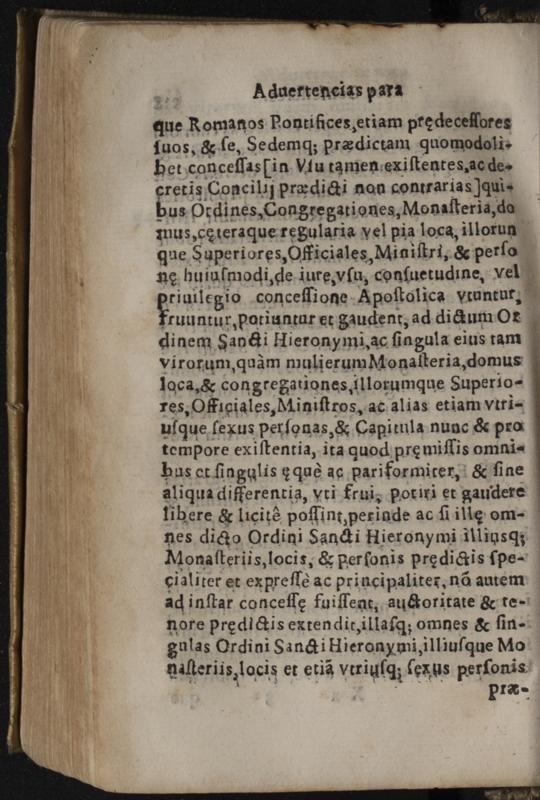 Aduertencias para
que Romanos Pontifices, etiam prędecessores
suos, & se, Sedemq; prædictam quomodoli-
bet concessas [in Vsu tamen existentes, ac de-
cretis Concilij prædicti non contrarias] qui-
bus Ordines, Congregationes, Monasteria, do
mus, cęteraque regularia vel pia loca, illorun
que Superiores, Officiales, Ministri, & perso
nę huiusmodi, de iure, vsu, consuetudine, vel
priuilegio concessione Apostolica vtuntur,
fruuntur, potiuntur et gaudent, ad dictum Or
dinem Sancti Hieronymi, ac singula eius tam
virorum, quàm mulierum Monasteria, domus
loca, & congregationes, illorumque Superio-
res, Officiales, Ministros, ac alias etiam vtri-
usque sexus personas, & Capitula nunc & pro
tempore existentia, ita quod pręmissis omni-
bus et singulis ęquè ac pariformiter, & sine
aliqua differentia, vti frui, potiri et gaudere
libere & licitê possint, perinde ac si illę om-
nes dicto Ordini Sancti Hieronymi illiusq;
Monasteriis, locis, & personis prędictis spe-
cialiter et expressè ac principaliter, nō autem
ad instar concessę fuissent, auctoritate & te-
nore prędictis extendit, illasq; omnes & sin-
gulas Ordini Sancti Hieronymi, illiusque Mo
nasteriis, locis et etiā vtriusq; sexus personis
præ-